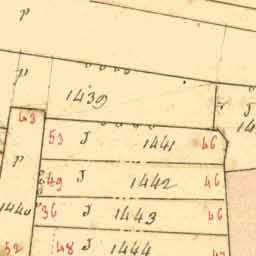 P
P
1439
43
53 J 1441 46
P
49 J 1442 46
1440
36 J 1443 46
52 48 J 1444